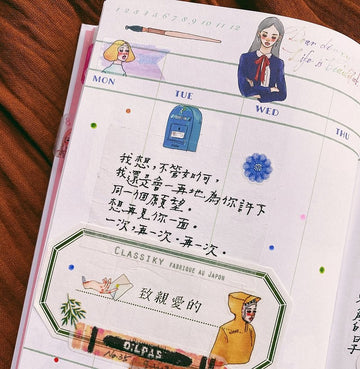 1 2 3 4 5 6 7 8 9 10 11 12
Dear
Life is beautiful
MON
TUE
WED
THU
我想,不管如何,
我還是會一再地為你許下
同一個願望。
想再見你一面。
一次,再一次。再一次。
CLASSIKY FABRIQUE AU JAPON
致親愛的
OILPAS
No.35